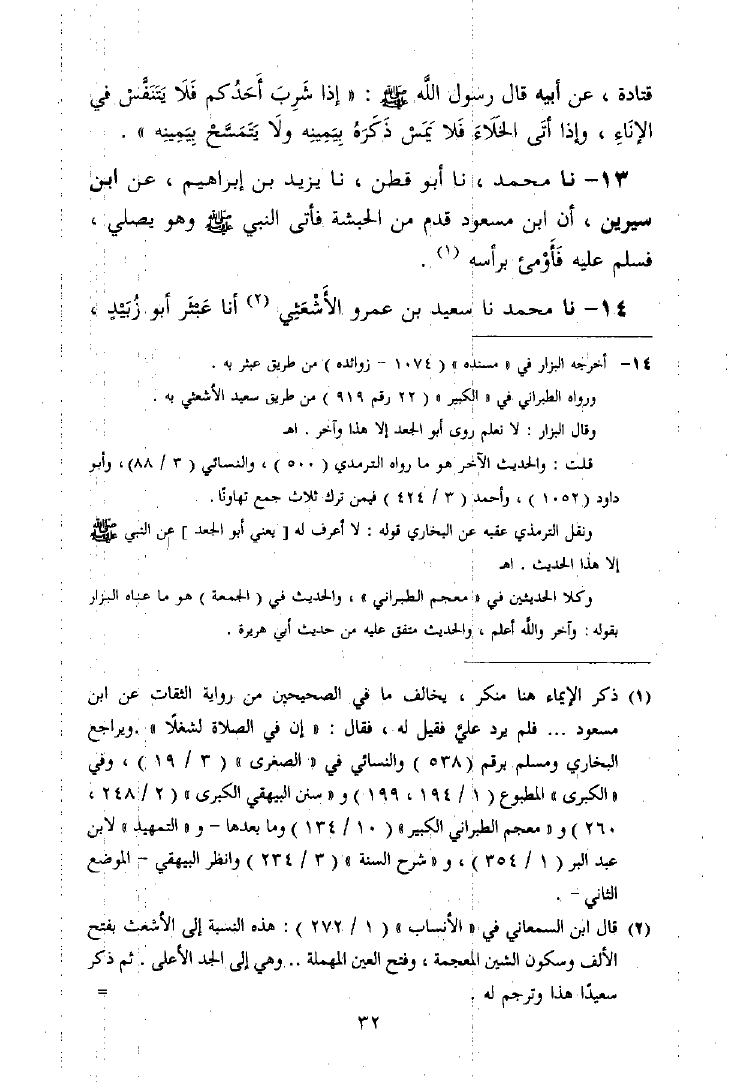 قتادة ، عن أبيه قال رسول اللَّه ﷺ : « إذا شَرِبَ أَحَدُكم فَلَا يَتَنَفَّسْ في
الإنَاءِ ، وإذا أتَى الخَلَاءَ فَلا يَمَسْ ذَكَرَهُ بِيَمِينِه ولَا يَتَمَسَّحْ بِيَمِينِه » .
١٣- نا محمد ، نا أبو قطن ، نا يزيد بن إبراهيم ، عن ابن
سيرين ، أن ابن مسعود قدم من الحبشة فأتى النبي ﷺ وهو يصلي ،
فسلم عليه فَأَوْمئ برأسه (١) .
١٤- نا محمد نا سعيد بن عمرو الأَشْعَثِي (٢) أنا عَبْثَر أبو زُبَيْدٍ ،
١٤- أخرجه البزار في « مسنده » ( ١٠٧٤ - زوائده ) من طريق عبثر به .
ورواه الطبراني في « الكبير » ( ٢٢ رقم ٩١٩ ) من طريق سعيد الأشعثي به .
وقال البزار : لا نعلم روى أبو الجعد إلا هذا وآخر . اهـ
قلت : والحديث الآخر هو ما رواه الترمذي ( ٥٠٠ ) ، والنسائي ( ٣ / ٨٨) ، وأبو
داود ( ١٠٥٢ ) ، وأحمد ( ٣ / ٤٢٤ ) فيمن ترك ثلاث جمع تهاونًا .
ونقل الترمذي عقبه عن البخاري قوله : لا أعرف له [ يعني أبو الجعد ] عن النبي ﷺ
إلا هذا الحديث . اهـ
وكلا الحديثين في « معجم الطبراني » ، والحديث في ( الجمعة ) هو ما عناه البزار
بقوله : وآخر واللَّه أعلم ، والحديث متفق عليه من حديث أبي هريرة .
(١) ذكر الإيماء هنا منكر ، يخالف ما في الصحيحين من رواية الثقات عن ابن
مسعود ... فلم يرد عليَّ فقيل له ، فقال : « إن في الصلاة لشغلًا » .ويراجع
البخاري ومسلم برقم ( ٥٣٨ ) والنسائي في « الصغرى » ( ٣ / ١٩ ) ، وفي
« الكبرى » المطبوع ( ١ / ١٩٤ ، ١٩٩ ) و « سنن البيهقي الكبرى » ( ٢ / ٢٤٨ ،
٢٦٠ ) و « معجم الطبراني الكبير » ( ١٠ / ١٣٤ ) وما بعدها - و « التمهيد » لابن
عبد البر ( ١ / ٣٥٤ ) ، و « شرح السنة » ( ٣ / ٢٣٤ ) وانظر البيهقي - الموضع
الثاني - .
(٢) قال ابن السمعاني في « الأنساب » ( ١ / ٢٧٢ ) : هذه النسبة إلى الأشعث بفتح
الألف وسكون الشين المعجمة ، وفتح العين المهملة .. وهي إلى الجد الأعلى . ثم ذكر
سعيدًا هذا وترجم له . =
٣٢